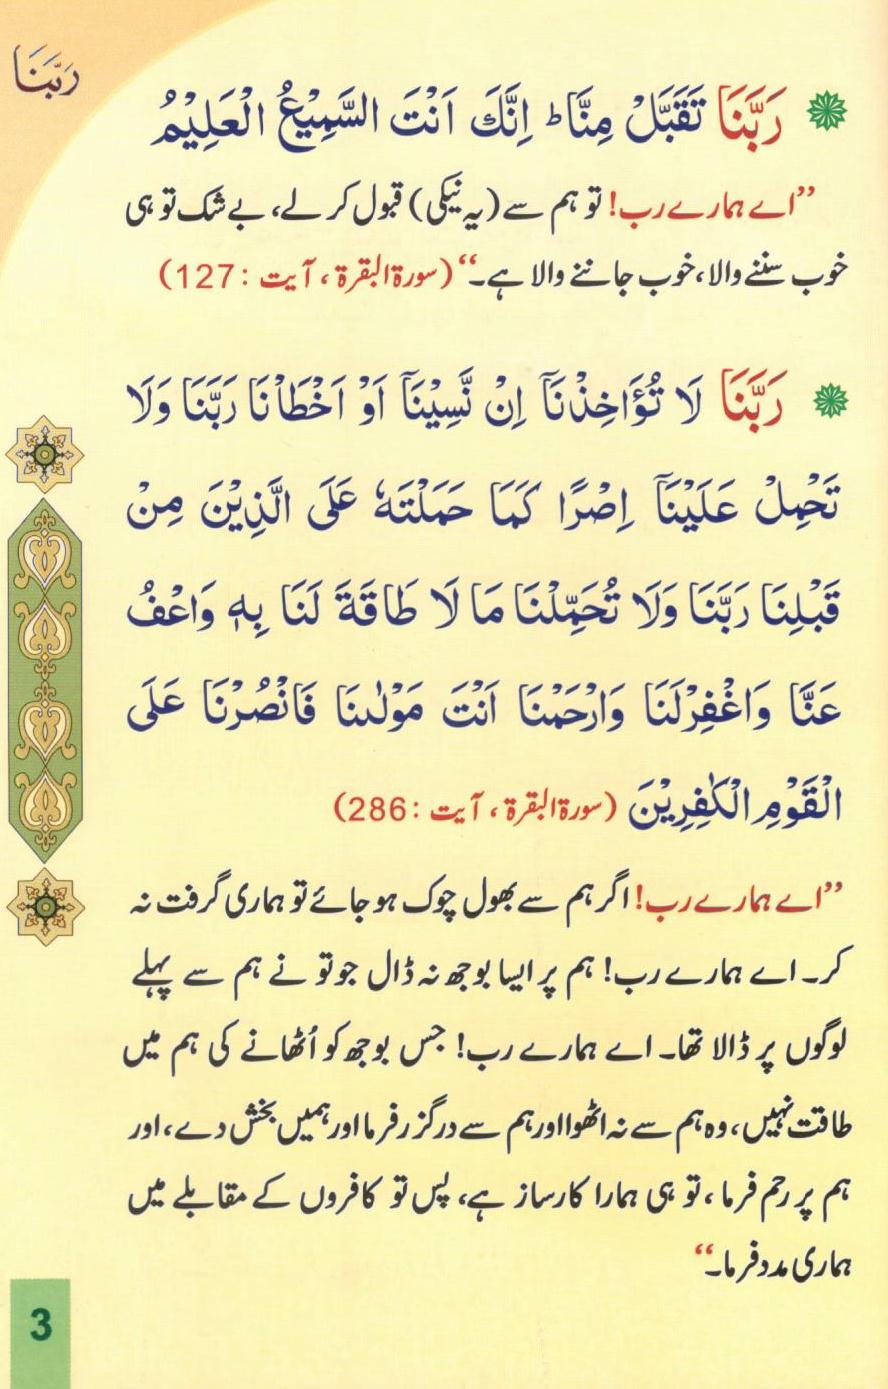 رَبَّنَا
رَبَّنَا تَقَبَّلْ مِنَّا ؕ اِنَّكَ اَنْتَ السَّمِيْعُ الْعَلِيْمُ
”اے ہمارے رب! تو ہم سے (یہ نیکی) قبول کر لے، بے شک تو ہی
خوب سننے والا، خوب جاننے والا ہے۔“ (سورۃ البقرۃ، آیت: 127)
رَبَّنَا لَا تُؤَاخِذْنَآ اِنْ نَّسِيْنَآ اَوْ اَخْطَاْنَا رَبَّنَا وَلَا
تَحْمِلْ عَلَيْنَآ اِصْرًا كَمَا حَمَلْتَهٗ عَلَى الَّذِيْنَ مِنْ
قَبْلِنَا رَبَّنَا وَلَا تُحَمِّلْنَا مَا لَا طَاقَةَ لَنَا بِهٖ وَاعْفُ
عَنَّا وَاغْفِرْلَنَا وَارْحَمْنَا اَنْتَ مَوْلٰىنَا فَانْصُرْنَا عَلَى
الْقَوْمِ الْكٰفِرِيْنَ (سورۃ البقرۃ، آیت: 286)
”اے ہمارے رب! اگر ہم سے بھول چوک ہو جائے تو ہماری گرفت نہ
کر۔ اے ہمارے رب! ہم پر ایسا بوجھ نہ ڈال جو تو نے ہم سے پہلے
لوگوں پر ڈالا تھا۔ اے ہمارے رب! جس بوجھ کو اُٹھانے کی ہم میں
طاقت نہیں، وہ ہم سے نہ اٹھوا اور ہم سے درگزر فرما اور ہمیں بخش دے، اور
ہم پر رحم فرما، تو ہی ہمارا کارساز ہے، پس تو کافروں کے مقابلے میں
ہماری مدد فرما۔“
3